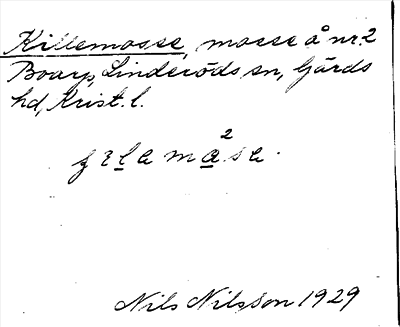 Killemosse, mosse å nr. 2
Boarp, Linderöds sn, Gärds
hd, Krist. l.
2
Nils Nilsson 1929